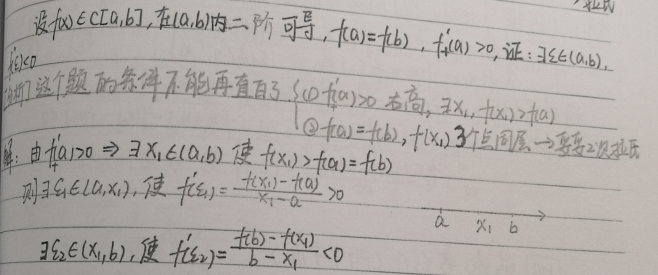 设f(x)∈C[a,b], 在(a,b)内二阶可导, f(a)=f(b), f'₊(a)>0, 证: ∃ξ∈(a,b),
f''(ξ)<0
分析: 这个题的条件不能再直白了 { ① f'(a)>0 右高, ∃x₁, f(x₁)>f(a)
② f(a)=f(b), f(x₁) 3个点同层 → 要要2次拉氏
解: 由f'₊(a)>0 ⇒ ∃x₁∈(a,b) 使 f(x₁)>f(a)=f(b)
则∃ξ₁∈(a,x₁), 使 f'(ξ₁)=\frac{f(x₁)-f(a)}{x₁-a}>0
a x₁ b
∃ξ₂∈(x₁,b), 使 f'(ξ₂)=\frac{f(b)-f(x₁)}{b-x₁}<0